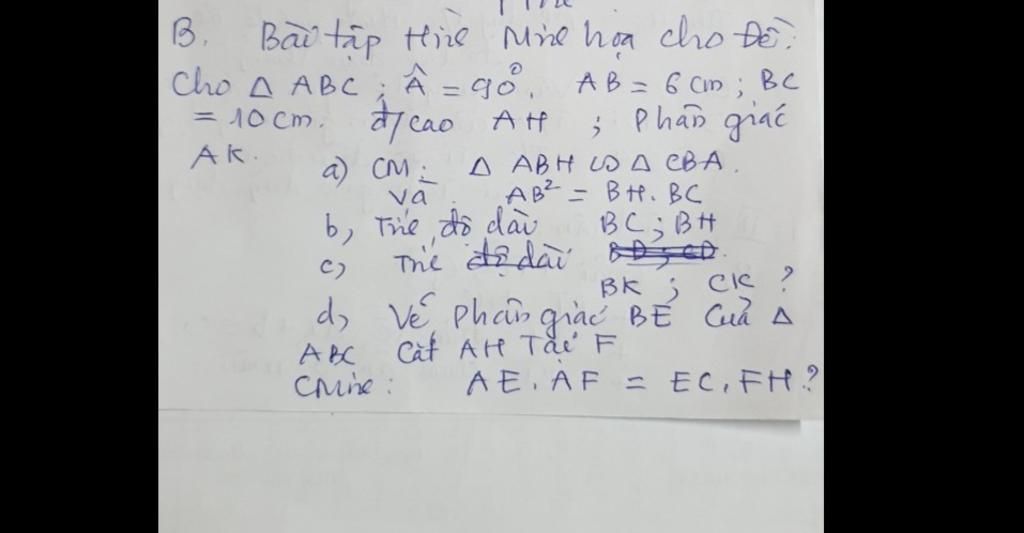 B. Bài tập Hình Minh họa cho Đề:
Cho Δ ABC ; Â = 90°. AB = 6 cm ; BC
= 10 cm. đ/cao AH ; Phân giác
AK.
a) CM: Δ ABH ∽ Δ CBA.
và AB² = BH. BC
b, Tính độ dài BC ; BH
c) Tính độ dài BD ; CD.
BK ; CK ?
d) Vẽ Phân giác BE của Δ
ABC cắt AH Tại F
CMinh: AE. AF = EC. FH ?